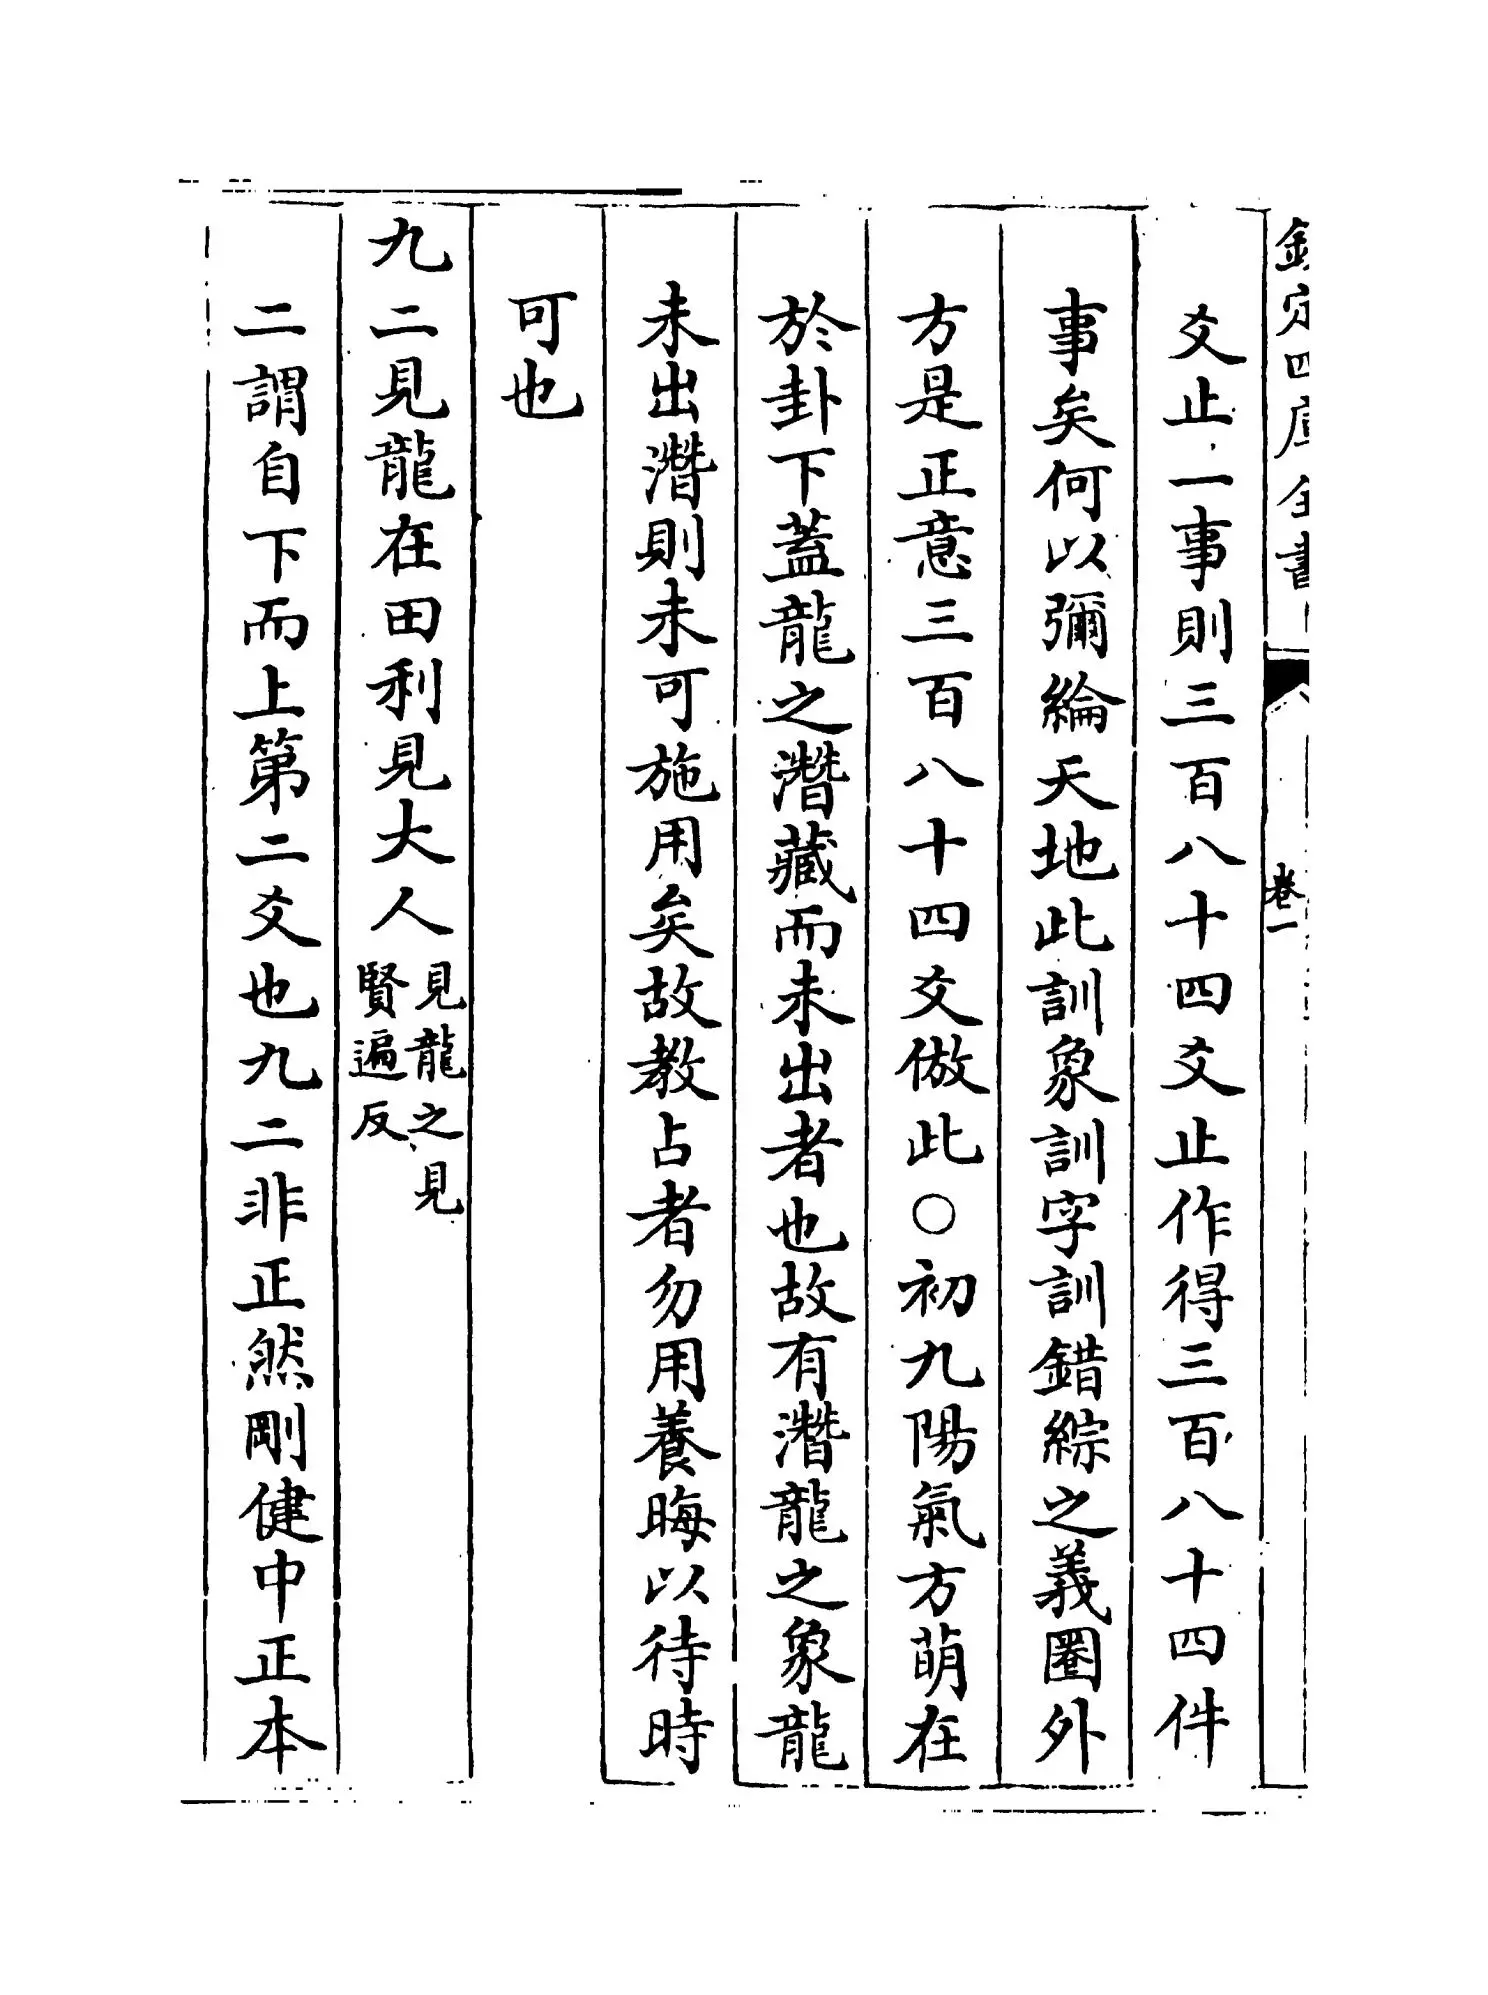 欽定四庫全書
卷一
爻止一事則三百八十四爻止作得三百八十四件
事矣何以彌綸天地此訓象訓字訓錯綜之義圈外
方是正意三百八十四爻倣此○初九陽氣方萌在
於卦下蓋龍之潛藏而未出者也故有潛龍之象龍
未出潛則未可施用矣故教占者勿用養晦以待時
可也
九二見龍在田利見大人見龍之見
賢遍反
二謂自下而上第二爻也九二非正然剛健中正本